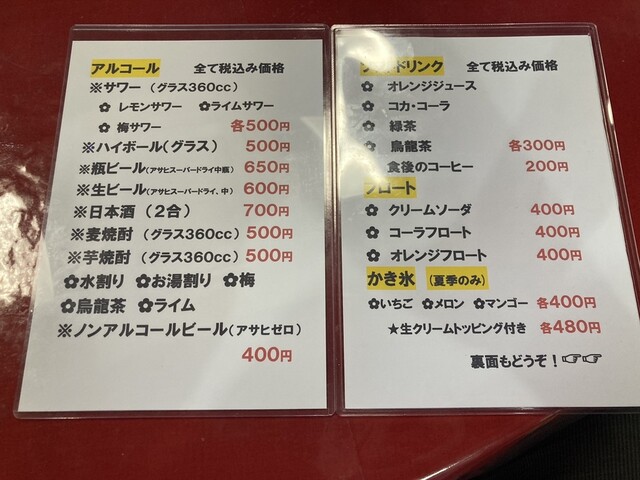 アルコール 全て税込み価格
※サワー(グラス360cc)
✿ レモンサワー ✿ライムサワー
✿ 梅サワー 各500円
※ハイボール(グラス) 500円
※瓶ビール(アサヒスーパードライ中瓶) 650円
※生ビール(アサヒスーパードライ、中) 600円
※日本酒(2合) 700円
※麦焼酎(グラス360cc) 500円
※芋焼酎(グラス360cc) 500円
✿水割り ✿お湯割り ✿梅
✿烏龍茶 ✿ライム
※ノンアルコールビール(アサヒゼロ)
400円
ドリンク 全て税込み価格
✿ オレンジジュース
✿ コカ・コーラ
✿ 緑茶
✿ 烏龍茶 各300円
食後のコーヒー 200円
フロート
✿ クリームソーダ 400円
✿ コーラフロート 400円
✿ オレンジフロート 400円
かき氷 (夏季のみ)
✿いちご ✿メロン ✿マンゴー 各400円
★生クリームトッピング付き 各480円
裏面もどうぞ!☞☞